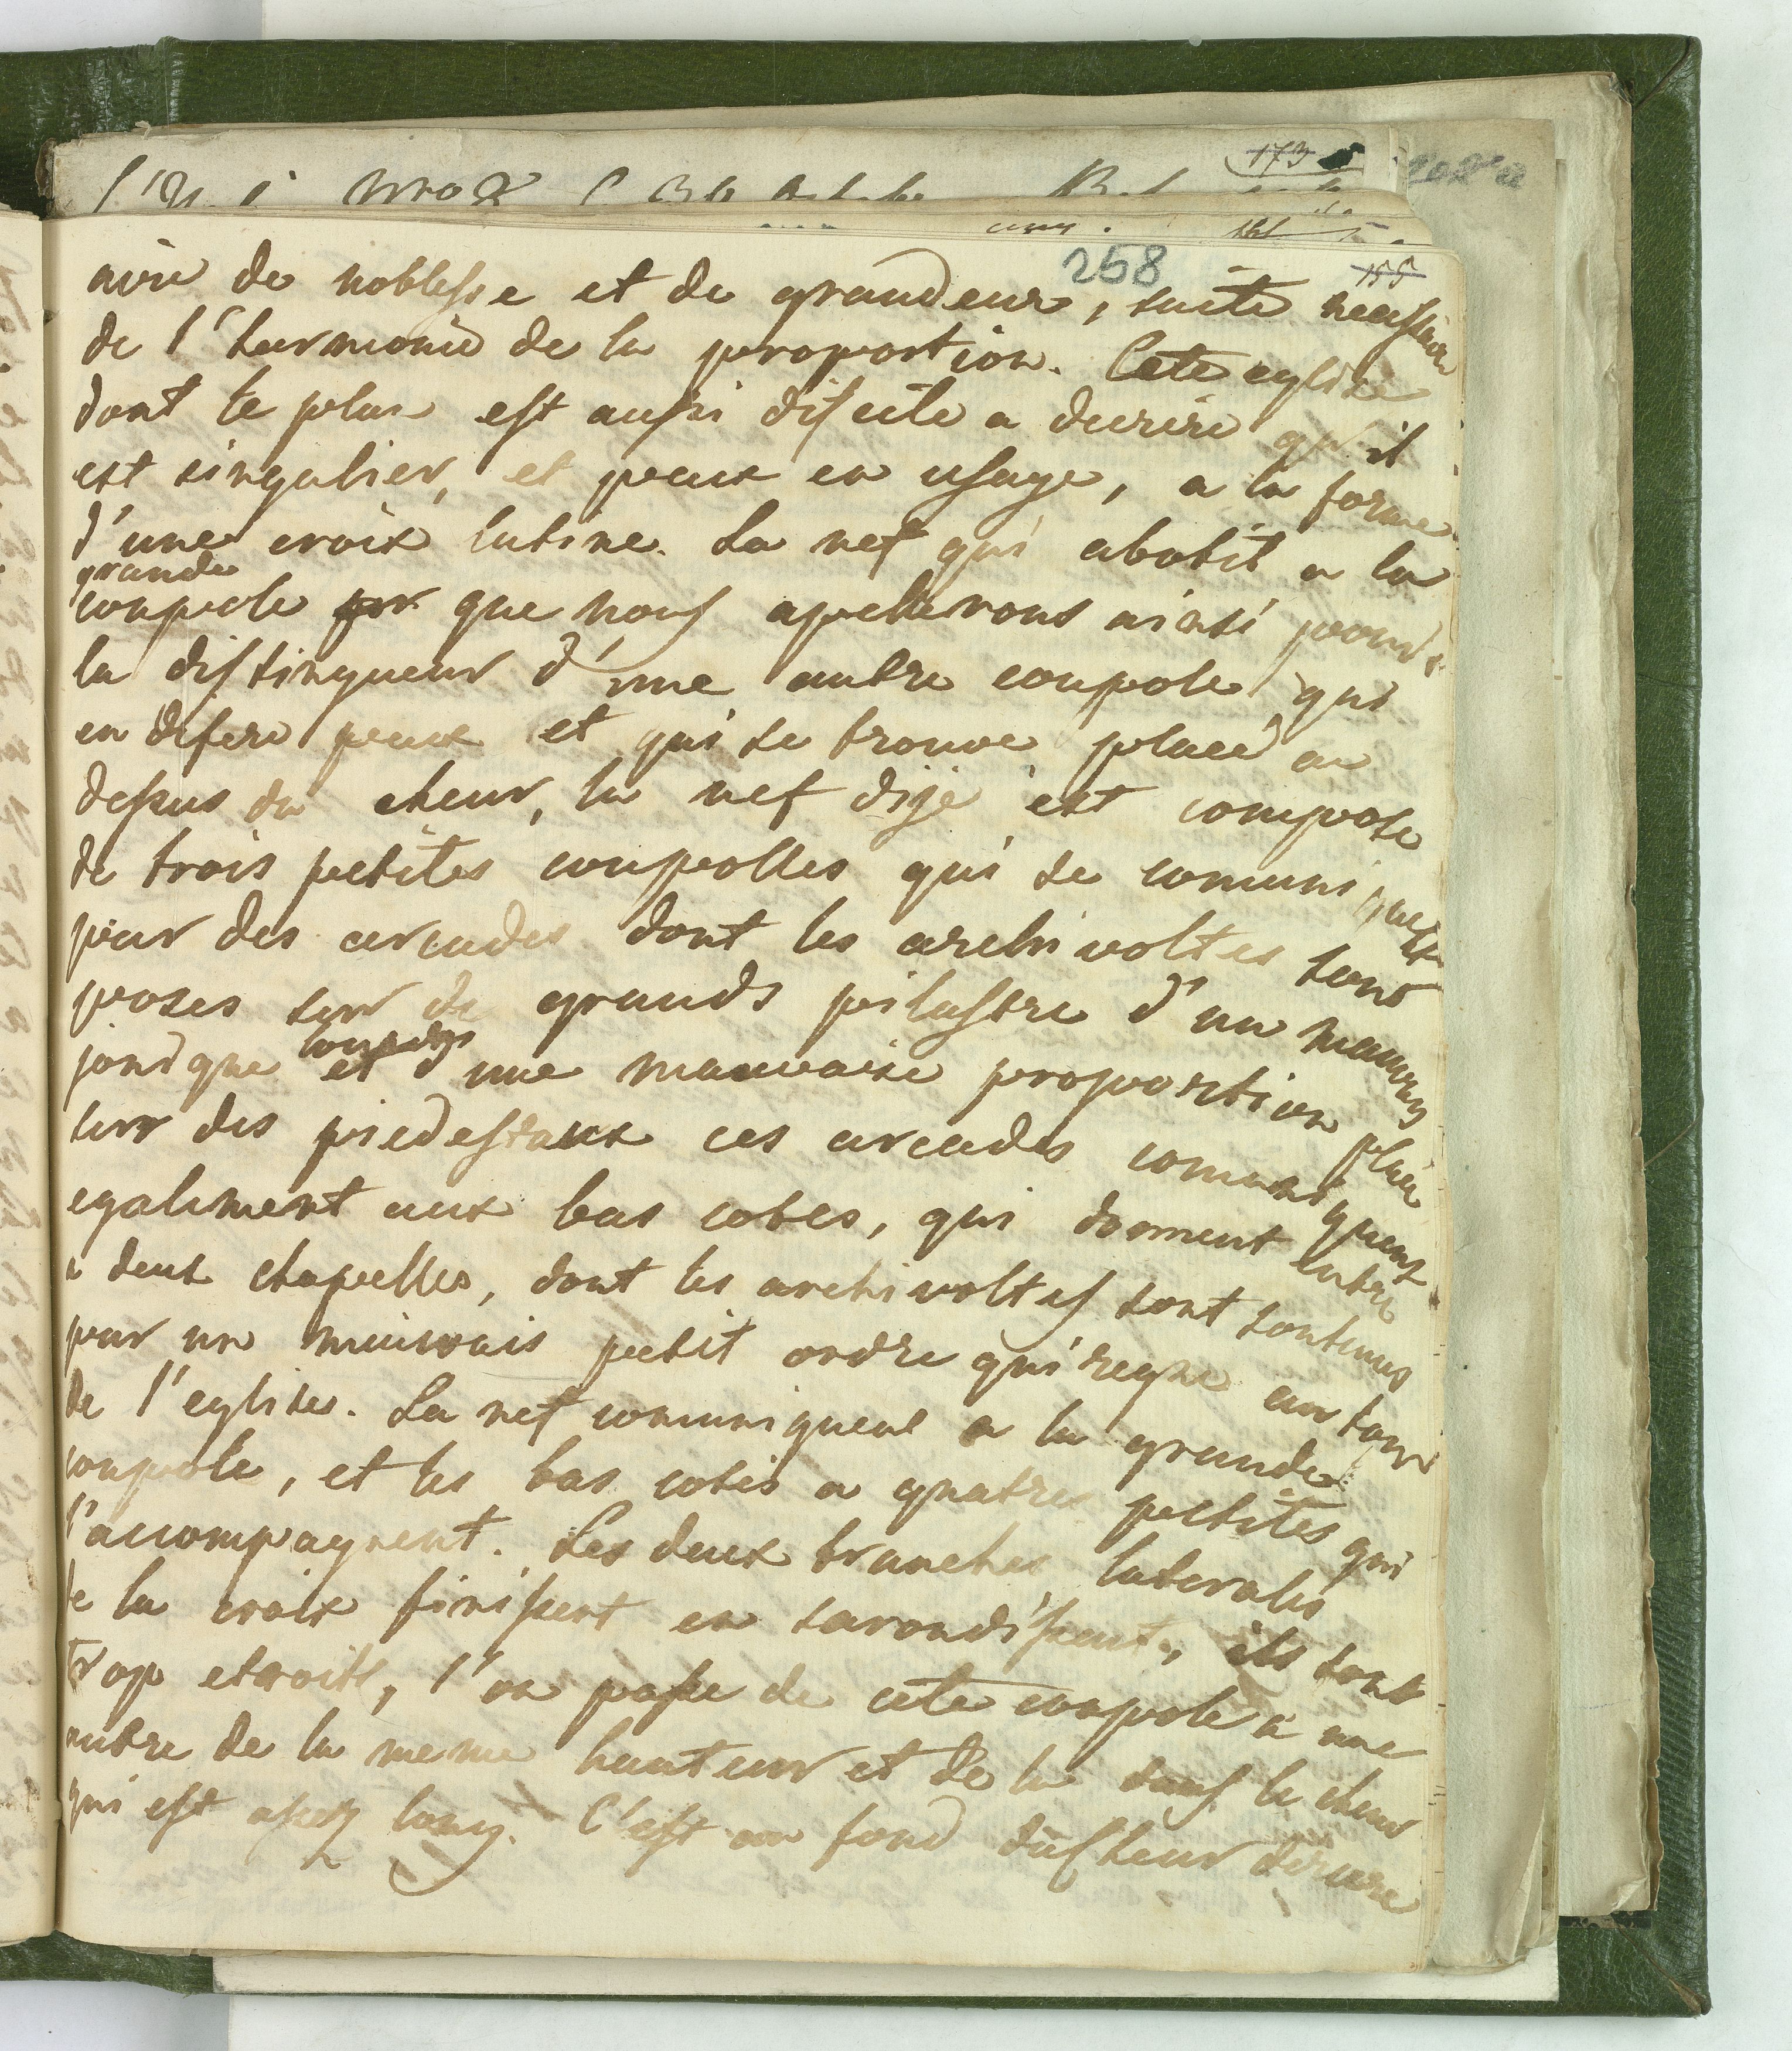 258
155
173
aire de noblesse et de grandeur, suite necessaire
de l'harmonie de la proportion. Cete eglise
dont le plan est aussi dificile a decrire qu'il
est singulier, et peux en usage, a la forme
d'une croix latine. La nef qui abotit a la
grande
coupole que nous apellerons ainsi pour
la distingueur d'une autre coupole qui
en difere peux et qui se trouve placé au
dessus du cheur, la nef dije est compose
de trois petites coupolles qui se comuniquent
par des arcades dont les archivoltes sont
poses sur de grands pilastre d'un mauvais
lourds
jonique et d'une mauvaise proportion placé
sur des piedestaux ces arcades comuniquent
egalement aux bas cotes, qui donnent entre
a deux chapelles, dont les archivoltes sont soutenus
par un mauvais petit ordre qui regne au tour
de l'eglise. La nef comuniquent a la grande
coupole, et les bas cotés a quatres petites qui
l'accompagnent. Les deux branches laterales
de la croix finissent en sarondissent, ils sont
trop etroits, l'on passe de cete coupole a une
autre de la meme hauteur et de la dans le cheur
qui est assez long. C'est au fond du cheur deriere